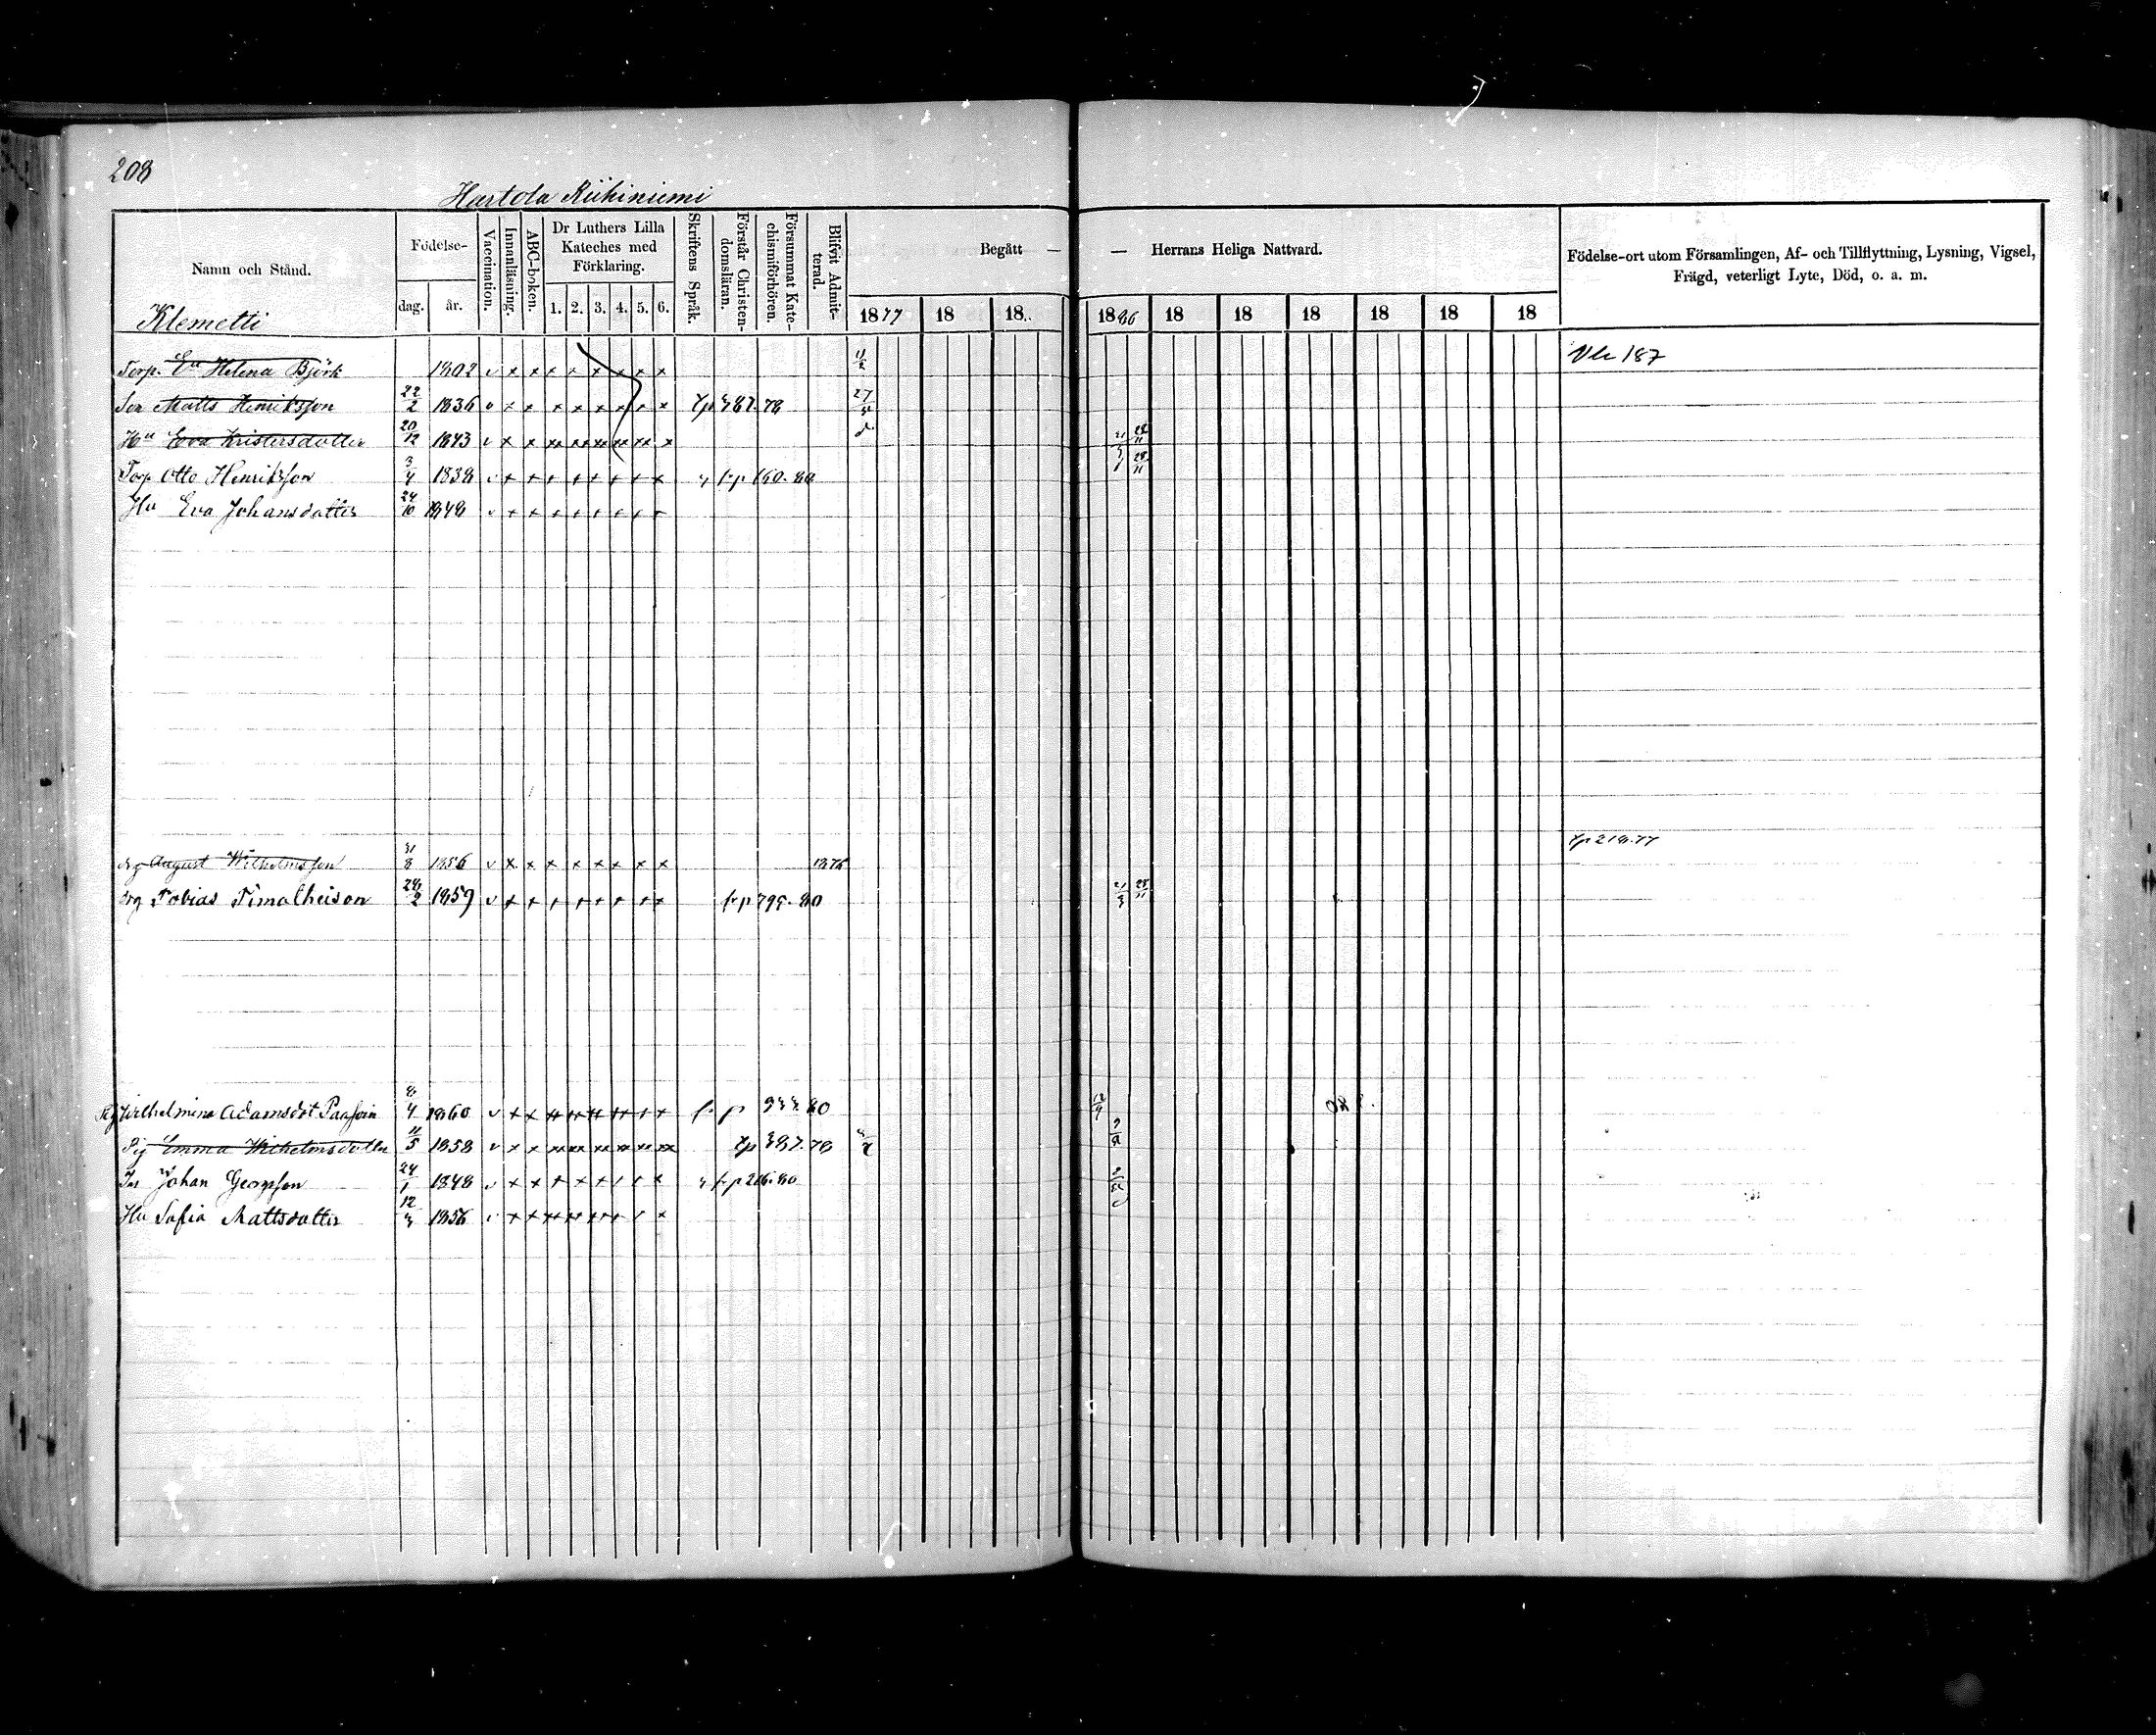 208
Hartola Riihiniemi
Namn och Stånd.
Födelse-
dag. år.
Vaccination.
Innanläsning.
ABC-boken.
Dr Luthers Lilla Kateches med Förklaring.
1. 2. 3. 4. 5. 6.
Skriftens Språk.
Förstår Christendomsläran.
Försummat Katechismiförhören.
Blifvit Admitterad.
Begått — — Herrans Heliga Nattvard.
1877 18 18 1886 18 18 18 18 18 18
Födelse-ort utom Församlingen, Af- och Tillflyttning, Lysning, Vigsel, Frägd, veterligt Lyte, Död, o. a. m.
Klemetti
Torp. Ea Helena Björk 1802 v x x x x x x x x 187
Son Matts Henriksson 22/2 1836 v x x x x x x x x 387.78 27/5
Hu Eva Kristersdotter 20/12 1843 v x x xx xx xx xx xx x
Torp Otto Henriksson 3/4 1838 v x x x x x x x x 160.80
Hu Eva Johansdotter 24/10 1848 v x x x x x x x x
Drg August Wilhelmsson 31/8 1856 v x x x x x x x x 1876 218.77
Drg Tobias Timotheison 28/2 1859 v x x x x x x x x 795.80
Pig Wilhelmina Adamsdot Paasoin 8/4 1860 v x x 80
Pig Emma Wilhelmsdotter 11/5 1858 v x x xx xx xx xx xx xx 387.78
Johan Georgsson 24/1 1848 v x x x x x x x x 216.80
Hu Sofia Mattsdotter 12/3 1856